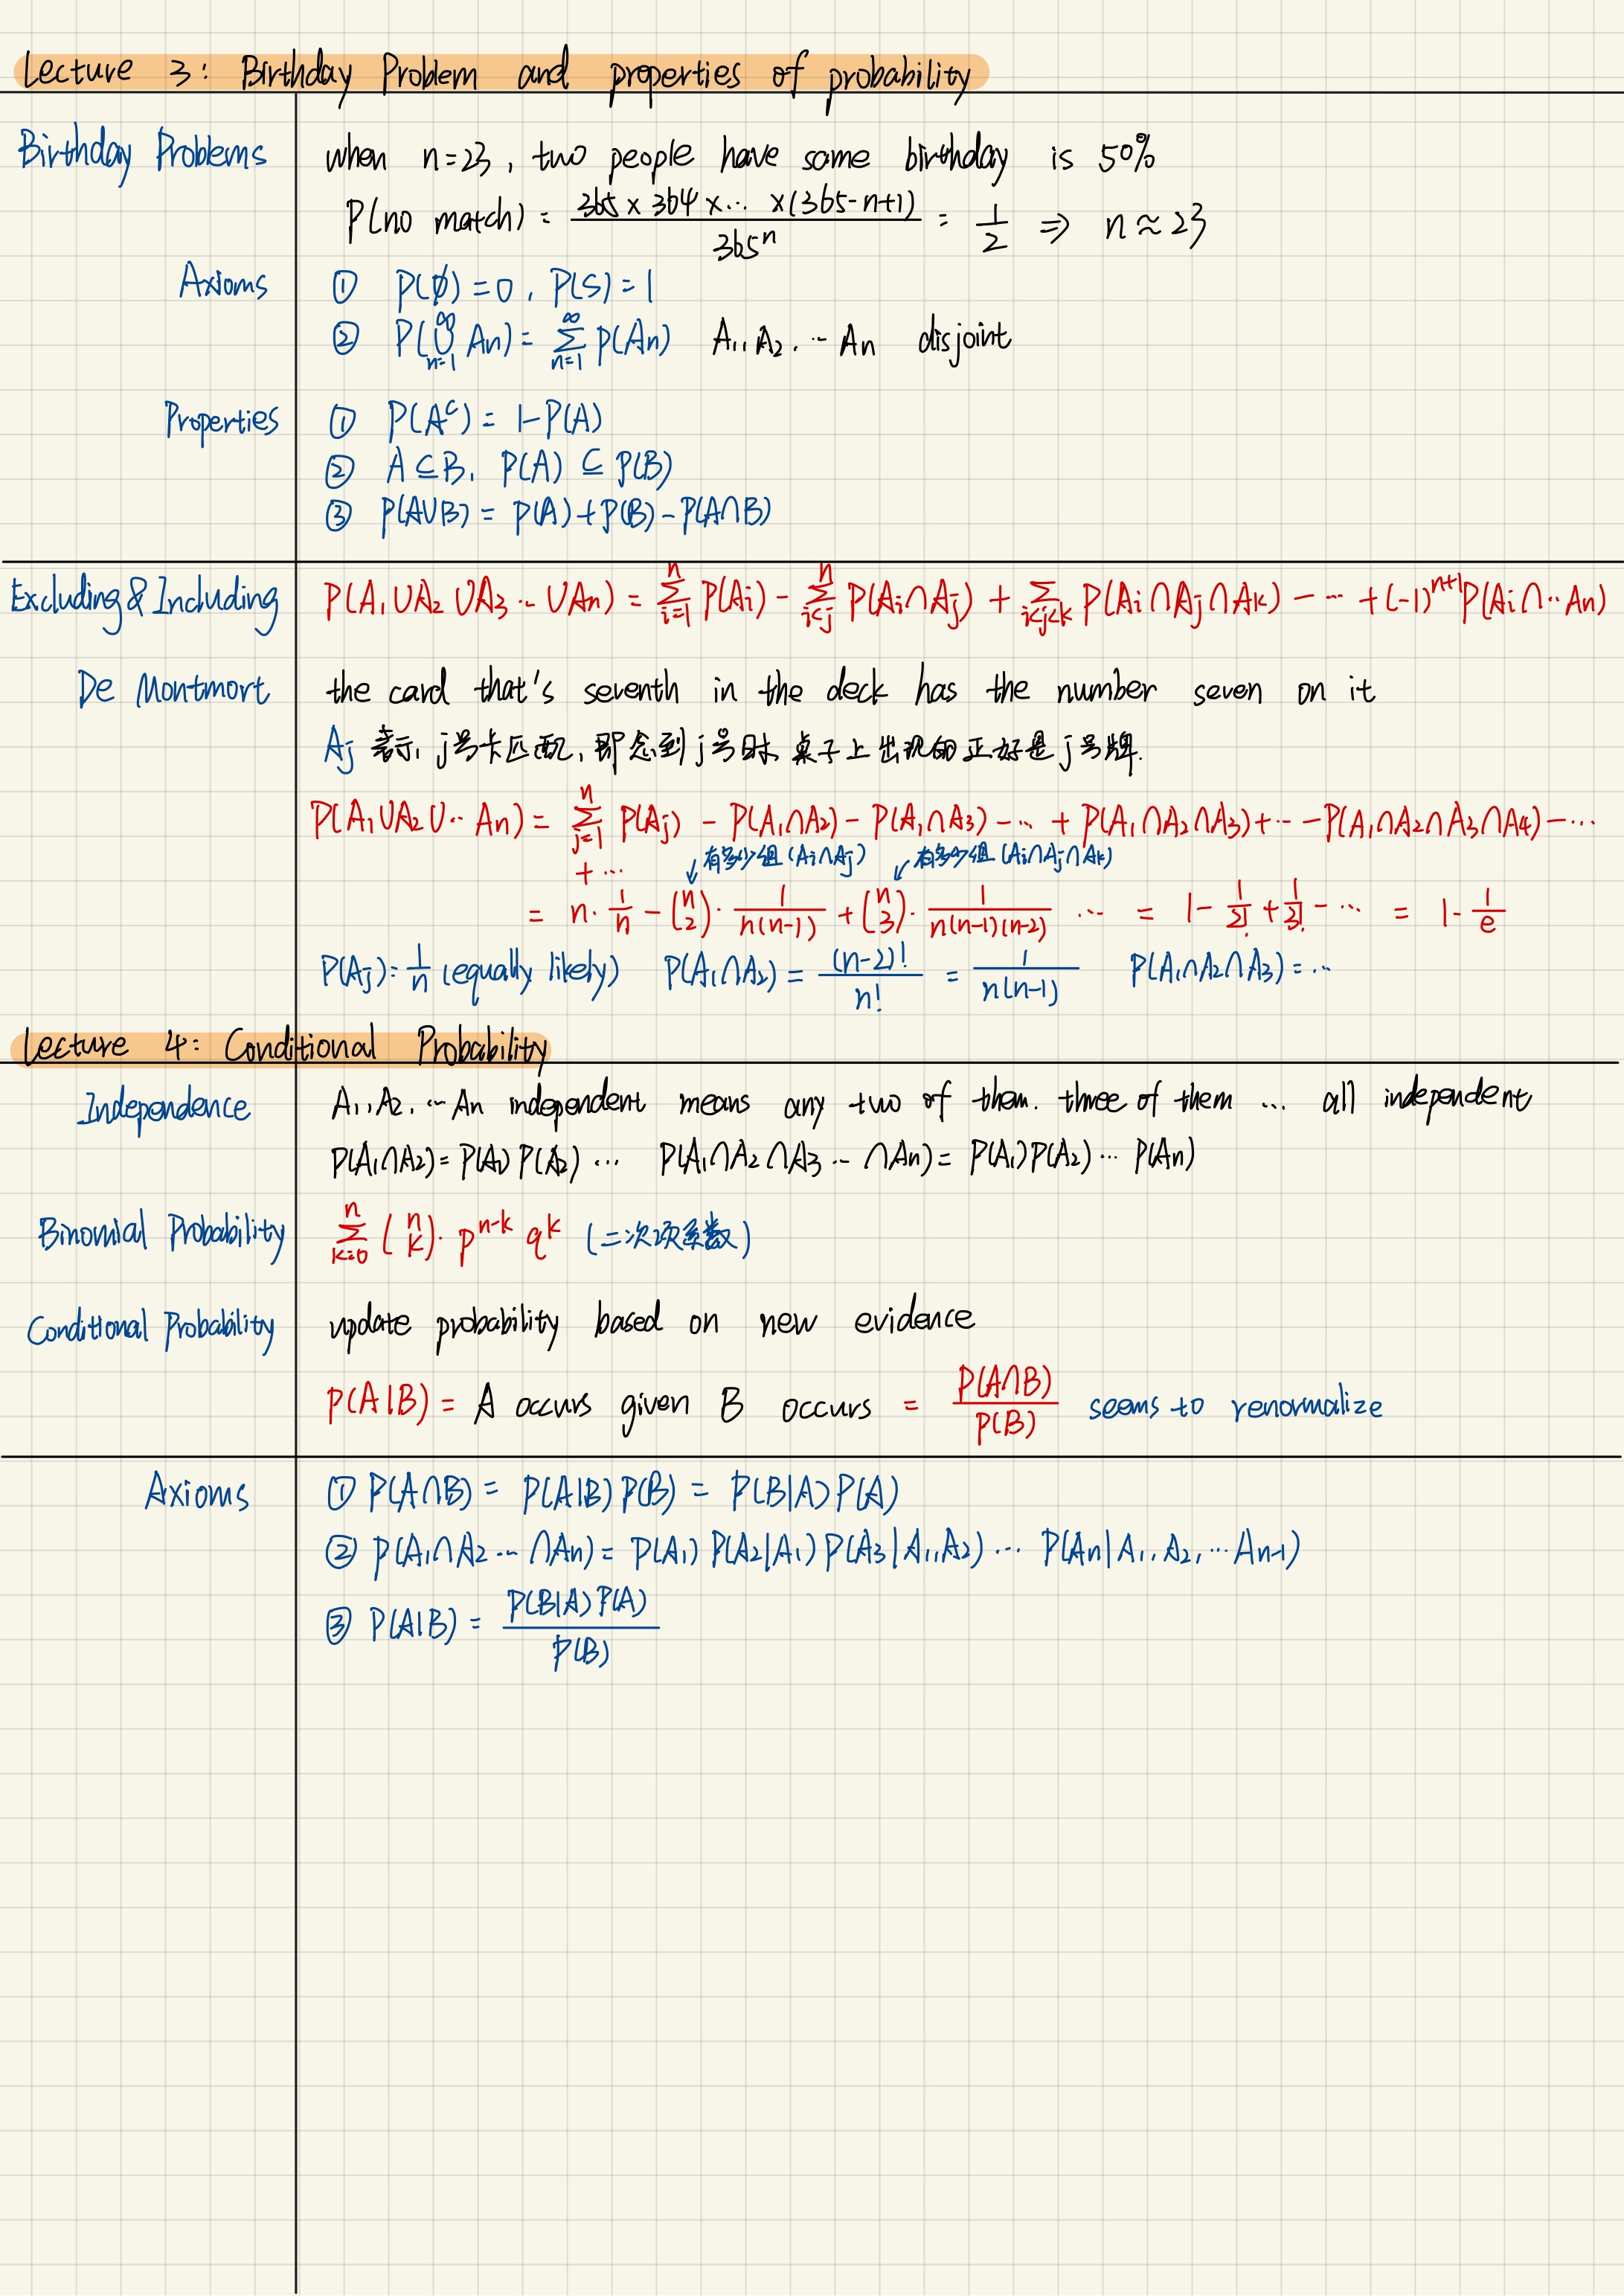 Lecture 3: Birthday Problem and properties of probability
Birthday Problems when n=23, two people have same birthday is 50%
P(no match) = \frac{365 × 364 × ... × (365-n+1)}{365^n} = \frac{1}{2} ⇒ n ≈ 23
Axioms ① P(∅) = 0, P(S) = 1
② P(\bigcup_{n=1}^{∞} An) = \sum_{n=1}^{∞} P(An) A₁, A₂, ... An disjoint
Properties ① P(A^c) = 1-P(A)
② A ⊆ B, P(A) ⊆ P(B)
③ P(A∪B) = P(A) + P(B) - P(A∩B)
Excluding & Including P(A₁∪A₂∪A₃...∪An) = \sum_{i=1}^{n} P(Ai) - \sum_{i<j}^{n} P(Ai∩Aj) + \sum_{i<j<k} P(Ai∩Aj∩Ak) - ... + (-1)^{n+1} P(Ai∩...An)
De Montmort the card that's seventh in the deck has the number seven on it
Aj 表示, j号卡匹配, 即念到j号时, 桌子上出现的正好是j号牌.
P(A₁∪A₂∪...An) = \sum_{j=1}^{n} P(Aj) - P(A₁∩A₂) - P(A₁∩A₃) - ... + P(A₁∩A₂∩A₃) + ... - P(A₁∩A₂∩A₃∩A4) - ...
+ ... ↙ 有多少组 (Ai∩Aj) ↙ 有多少组 (Ai∩Aj∩Ak)
= n · \frac{1}{n} - \binom{n}{2} · \frac{1}{n(n-1)} + \binom{n}{3} · \frac{1}{n(n-1)(n-2)} ... = 1 - \frac{1}{2!} + \frac{1}{3!} - ... = 1 - \frac{1}{e}
P(Aj) = \frac{1}{n} (equally likely) P(A₁∩A₂) = \frac{(n-2)!}{n!} = \frac{1}{n(n-1)} P(A₁∩A₂∩A₃) = ...
Lecture 4: Conditional Probability
Independence A₁, A₂, ... An independent means any two of them. three of them ... all independent
P(A₁∩A₂) = P(A₁) P(A₂) ... P(A₁∩A₂∩A₃...∩An) = P(A₁)P(A₂)...P(An)
Binomial Probability \sum_{k=0}^{n} \binom{n}{k} · p^{n-k} q^k (二次项系数)
Conditional Probability update probability based on new evidence
P(A|B) = A occurs given B occurs = \frac{P(A∩B)}{P(B)} seems to renormalize
Axioms ① P(A∩B) = P(A|B) P(B) = P(B|A) P(A)
② P(A₁∩A₂...∩An) = P(A₁) P(A₂|A₁) P(A₃|A₁,A₂) ... P(An|A₁,A₂,...An-1)
③ P(A|B) = \frac{P(B|A) P(A)}{P(B)}